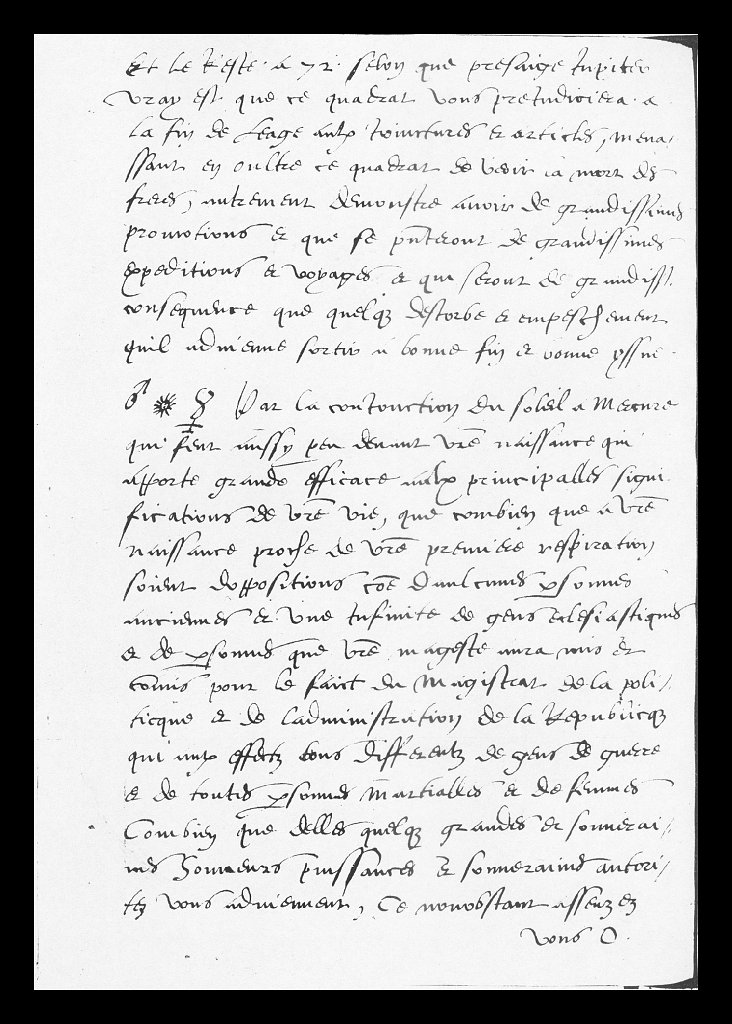 Et le reste a 72. selon que presaige Jupiter
vray est que ce quadrat vous prejudiciera a
la fin de leage aulx joinctures et articles, mena-
ssant en oultre ce quadrat de veoir la mort des
freres, autrement demonstre avoir de grandissimes
promotions et que se pñteront de grandissimes
expeditions et voyages et qui seront de grandiss.
consequence que quelq; destorbe et empeschement
quil advienne sortir a bonne fin et bonne yssue.
☌ ☀ ☿ Par la conjonction du soleil a Mercure
qui feut aussy peu devant vr̃e naissance qui
apporte grande efficace aulx principalles signi-
fications de vr̃e vie, que combien que a vr̃e
naissance proche de vr̃e premiere respiration
soient doppositions cõe daulcunes ꝑsonnes
anciennes et une infinite de gens eclesiastiques
et de ꝑsonnes que vr̃e mageste aura mis et
cõmis pour le faict du Magistrat de la poli-
ticque et de ladministration de la Republicq;
qui aux effectz tous differentz de gens de guerre
et de toutes ꝑsonnes Martialles et de femmes
Combien que delles quelq; grandes et souverai-
nes honneurs puissances et souveraines autori-
tez vous adviennent, Ce nonobstant assenz ez
vous O.